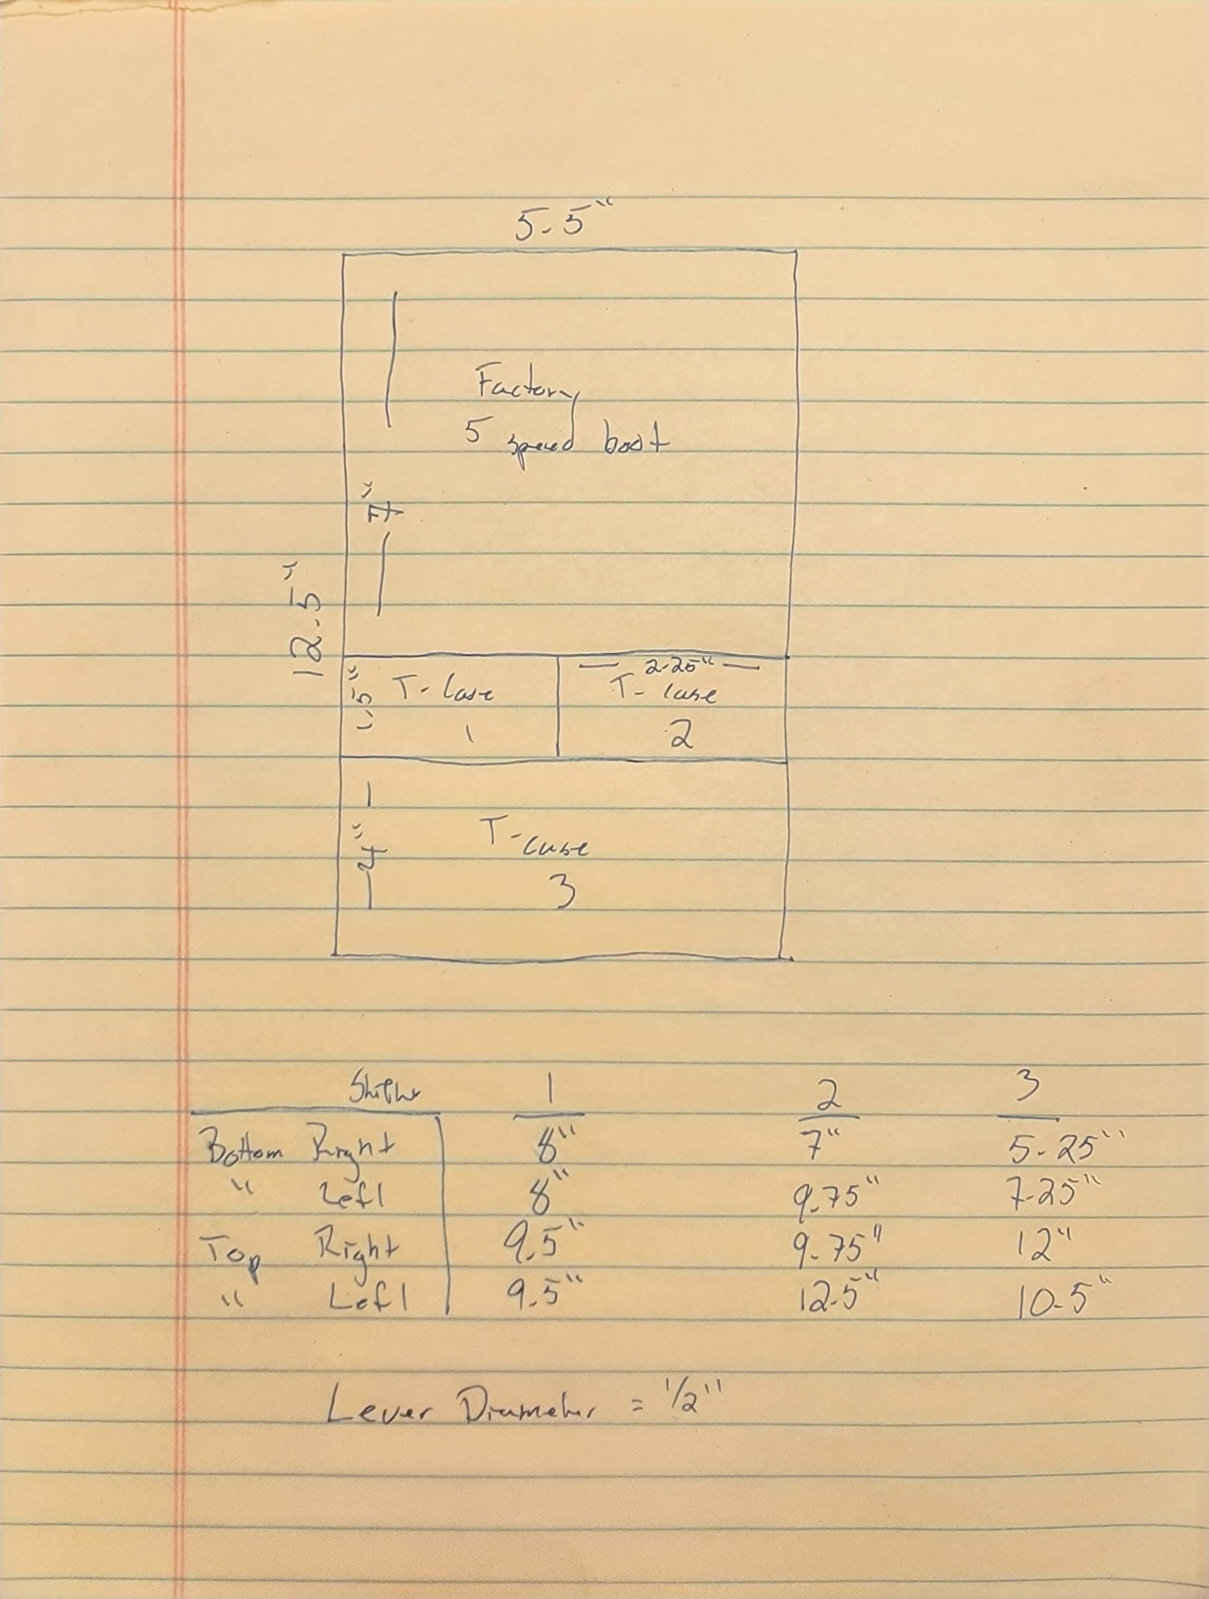 5.5"
Factory
5 speed boot
7"
12.5"
1.5"
T-Case
1
2.25"
T-case
2
4"
T-case
3
Shifter 1 2 3
Bottom Right 8" 7" 5.25"
" Left 8" 9.75" 7.25"
Top Right 9.5" 9.75" 12"
" Left 9.5" 12.5" 10.5"
Lever Diameter = 1/2"